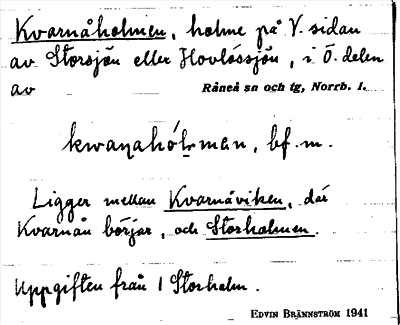 Kvarnåholmen, holme på V. sidan
av Storsjön eller Hovlössjön, i Ö. delen
av Råneå sn och tg, Norrb. l.
kwaṇahó̄lman, bf. m.
Ligger mellan Kvarnåviken, där
Kvarnån börjar, och Storholmen.
Uppgiften från 1 Storholm.
EDVIN BRÄNNSTRÖM 1941